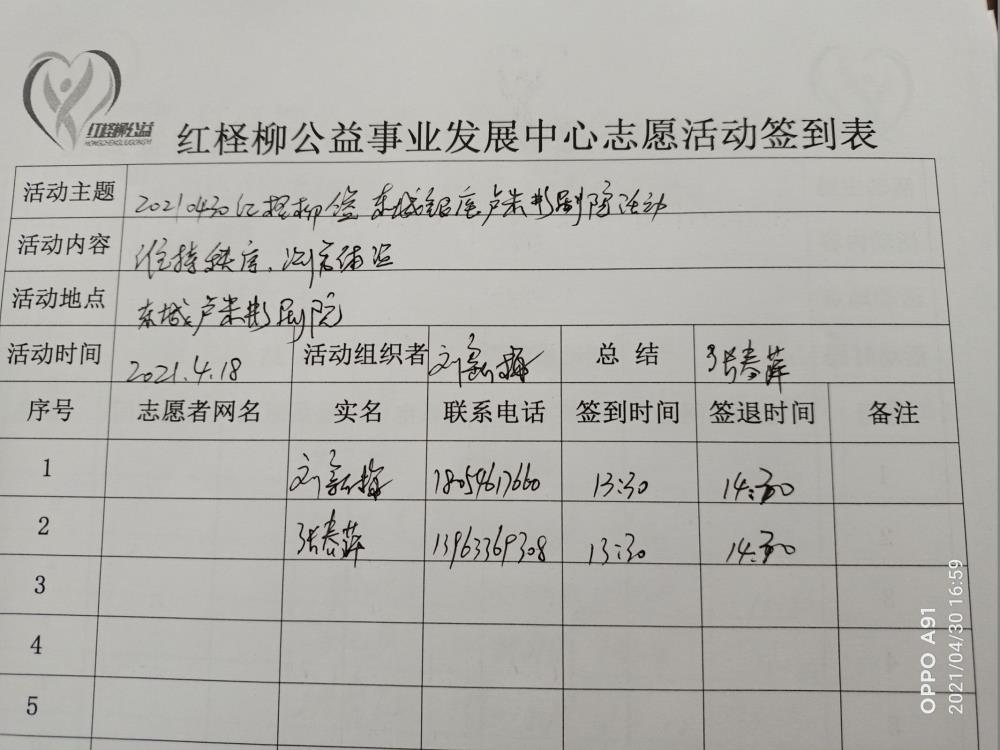 红柽柳公益
HONGCHENGLIUGONGYI
红柽柳公益事业发展中心志愿活动签到表
活动主题 20210430红柽柳 东城 卢米影剧院活动
活动内容 维持秩序、消防体温
活动地点 东城卢米影剧院
活动时间 2021.4.18 活动组织者 刘新梅 总 结 张春萍
序号 志愿者网名 实名 联系电话 签到时间 签退时间 备注
1 刘新梅 18054617660 13:30 14:30
2 张春萍 13963369308 13:30 14:30
3
4
5
OPPO A91
2021/04/30 16:59